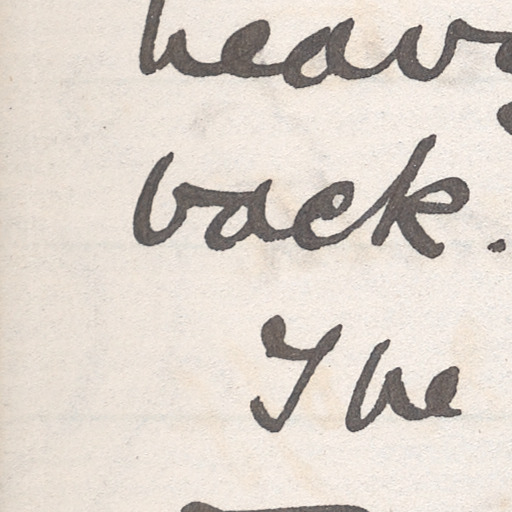 heavy
back.
The